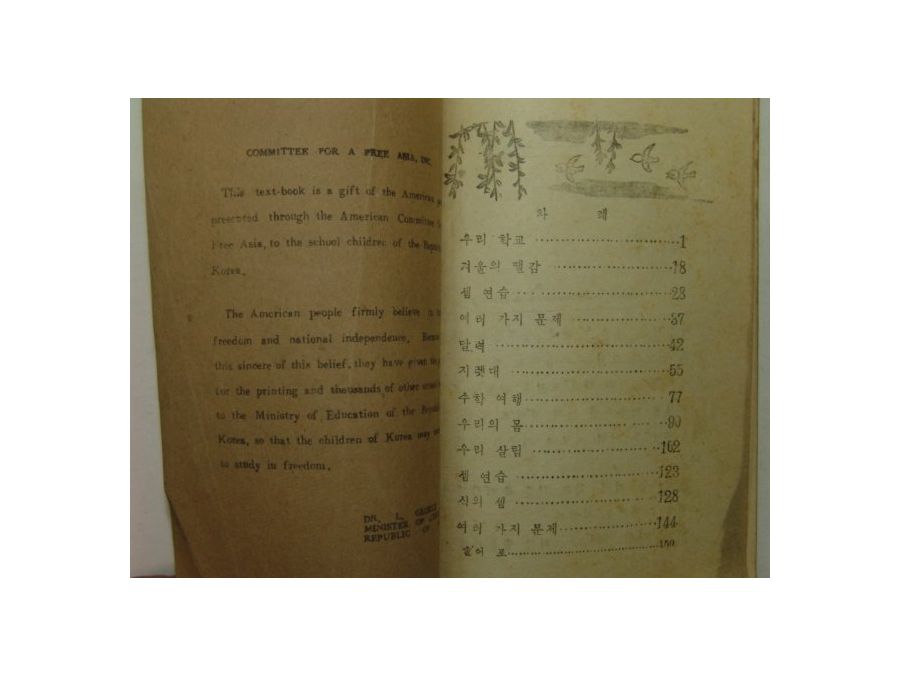 COMMITTEE FOR A FREE ASIA, INC.
This text-book is a gift of the American
presented through the American Committee
Free Asia, to the school children of the
Korea.
The American people firmly believe in
freedom and national independence.
this sincere of this belief, they have given
for the printing and thousands of other
to the Ministry of Education of the
Korea, so that the children of Korea may
to study in freedom.
DR. L. GEORGE
MINISTER OF
REPUBLIC OF
차 례
우리 학교 1
겨울의 땔감 18
셈 연습 23
여러 가지 문제 37
달력 42
지렛대 55
수학 여행 77
우리의 몸 90
우리 살림 102
셈 연습 123
식의 셈 128
여러 가지 문제 144